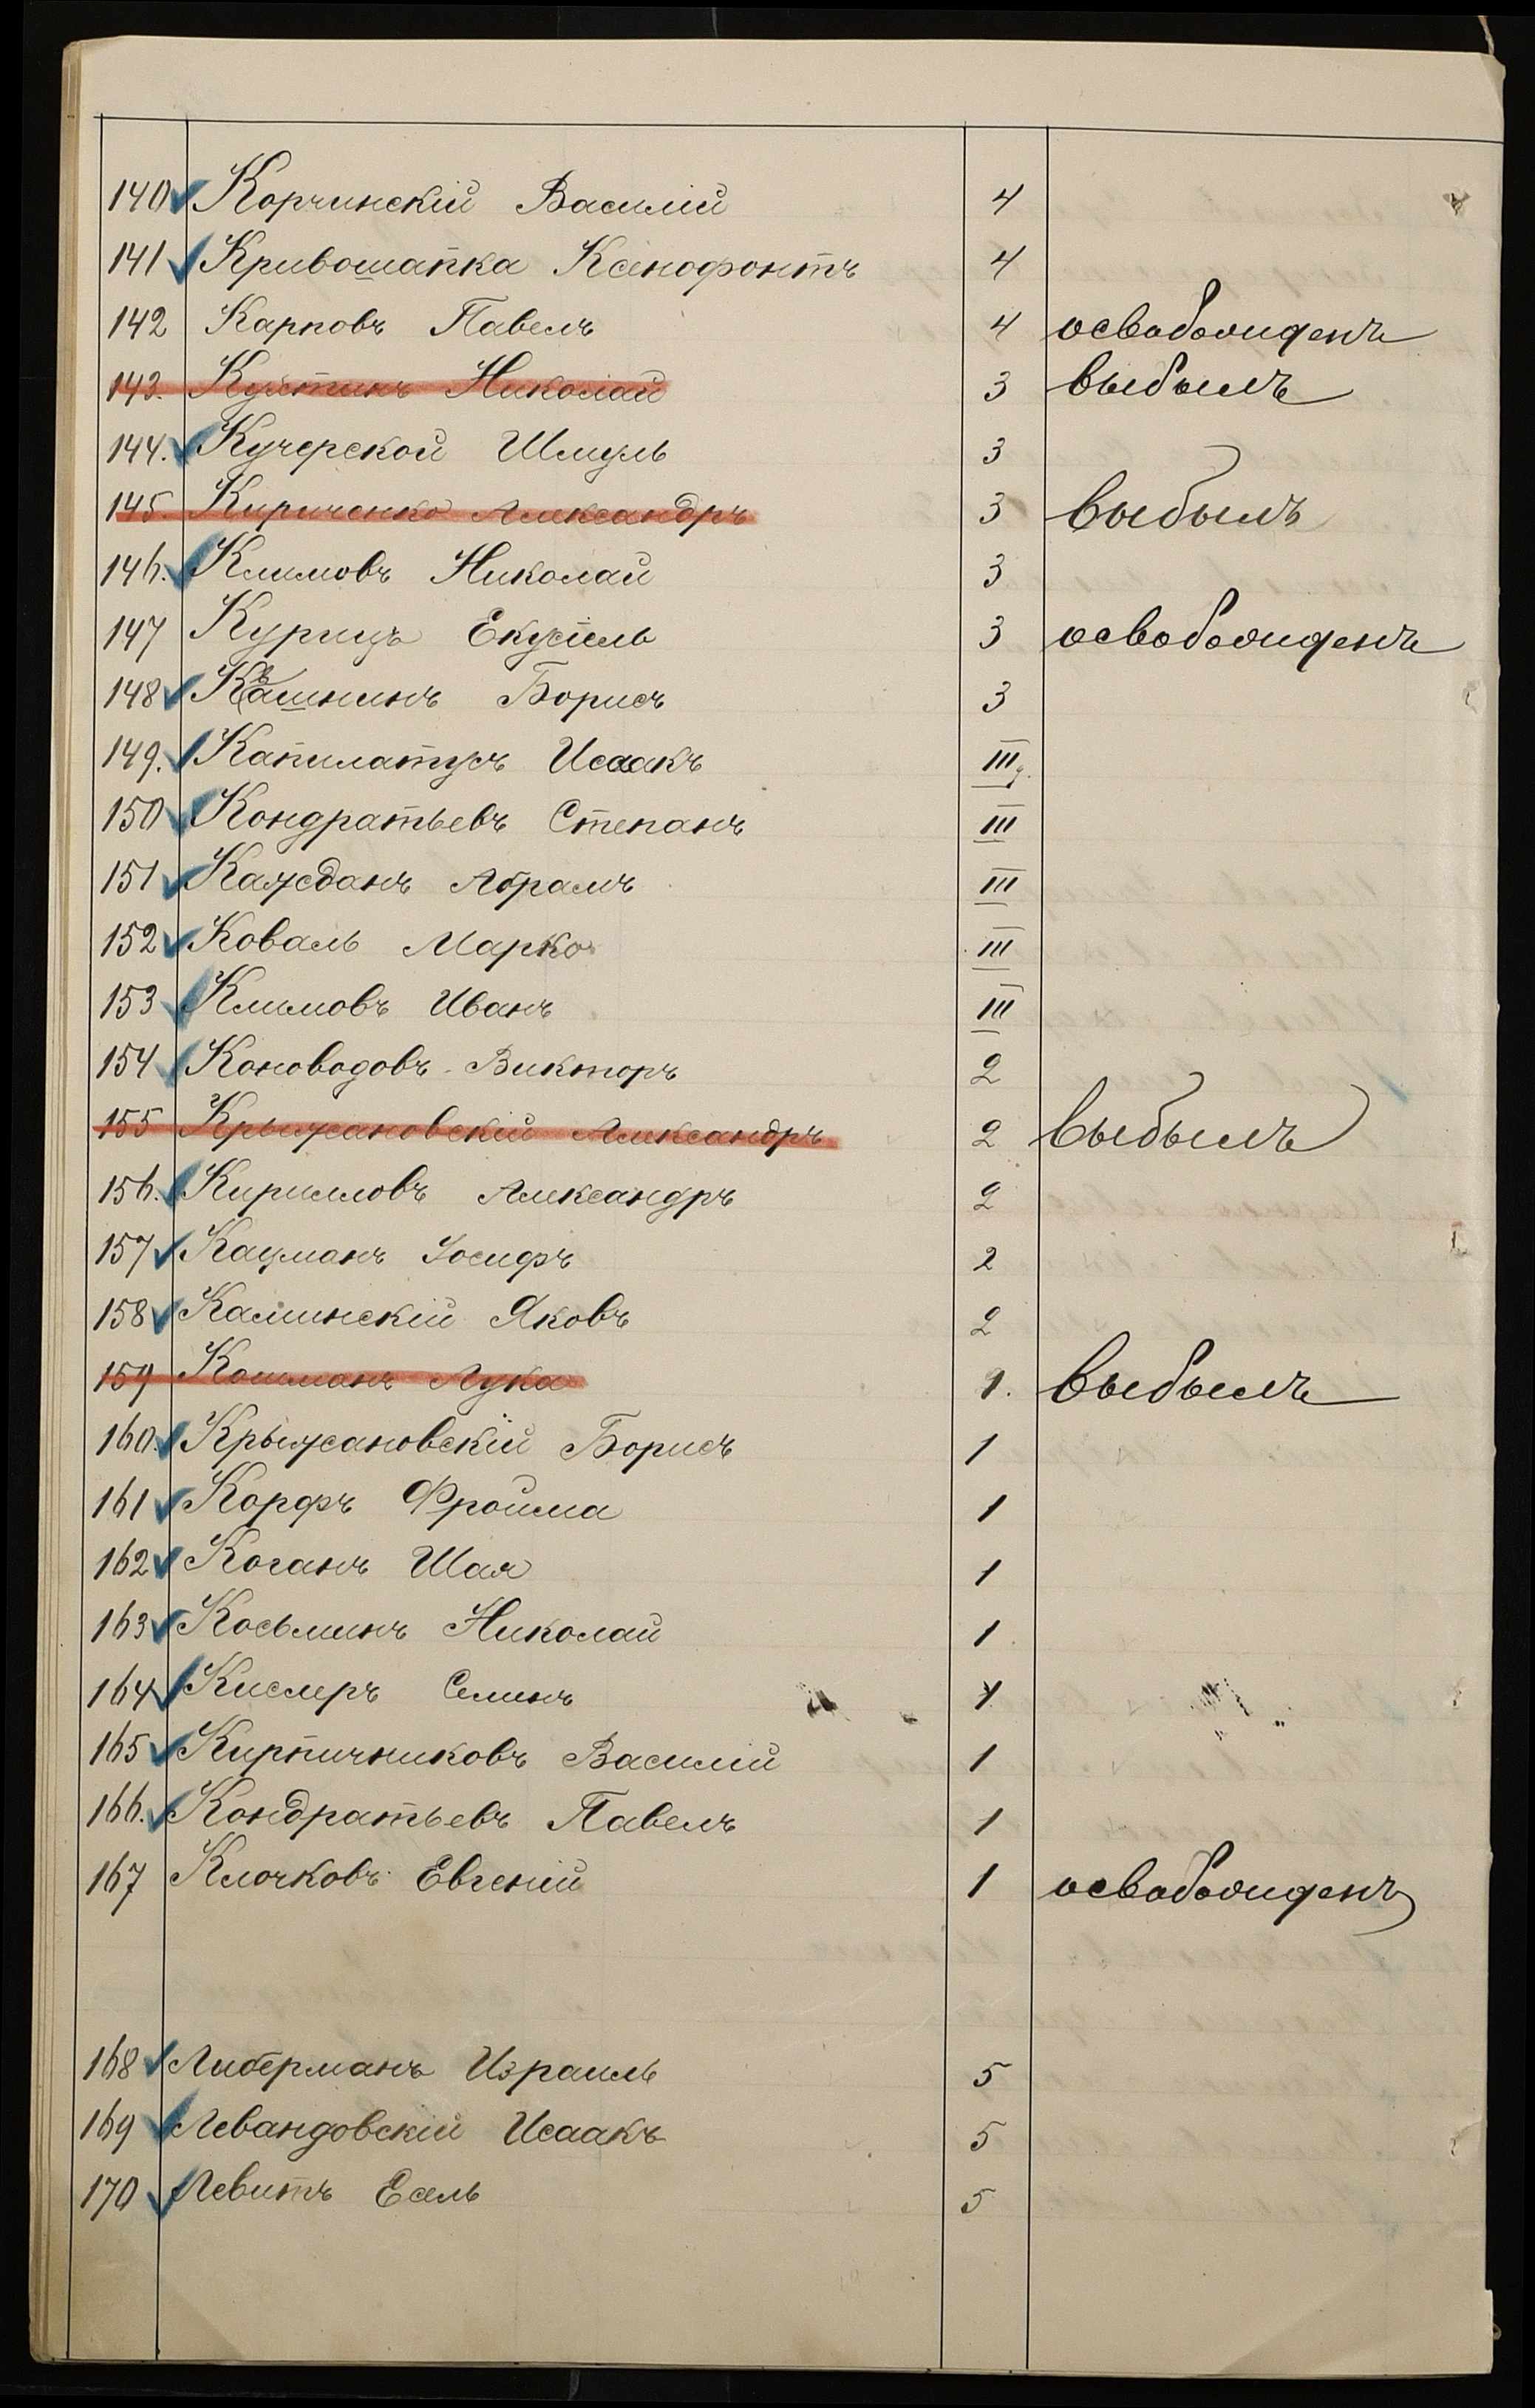 140 Корчинскій Василій 4
141 Кривошапка Ксенофонтъ 4
142 Карповъ Павелъ 4 освобожденъ
143. Кустинъ Николай 3 выбылъ
144. Кучерской Шмуль 3
145. Кириченко Александръ 3 выбылъ
146. Климовъ Николай 3
147 Курицъ Екусіель 3 освобожденъ
148 Кашнинъ Борисъ 3
149. Капилатусъ Исаакъ III
150 Кондратьевъ Степанъ III
151 Каждань Абрамъ III
152 Коваль Марко III
153 Климовъ Иванъ III
154 Коноводовъ Викторъ 2
155 Крыжановскій Александръ 2 выбылъ
156. Кирилловъ Александръ 2
157 Кацманъ Іосифъ 2
158 Калинскій Яковъ 2
159 Кошманъ Лука 1. выбылъ
160. Крыжановскій Борисъ 1
161 Корфъ Фройма 1
162 Коганъ Шая 1
163 Косьминъ Николай 1
164 Кислеръ Семинъ 1
165 Кирпичниковъ Василій 1
166. Кондратьевъ Павелъ 1
167 Клочковъ Евгеній 1 освобожденъ
168 Либерманъ Израиль 5
169 Левандовскій Исаакъ 5
170 Левитъ Есель 5